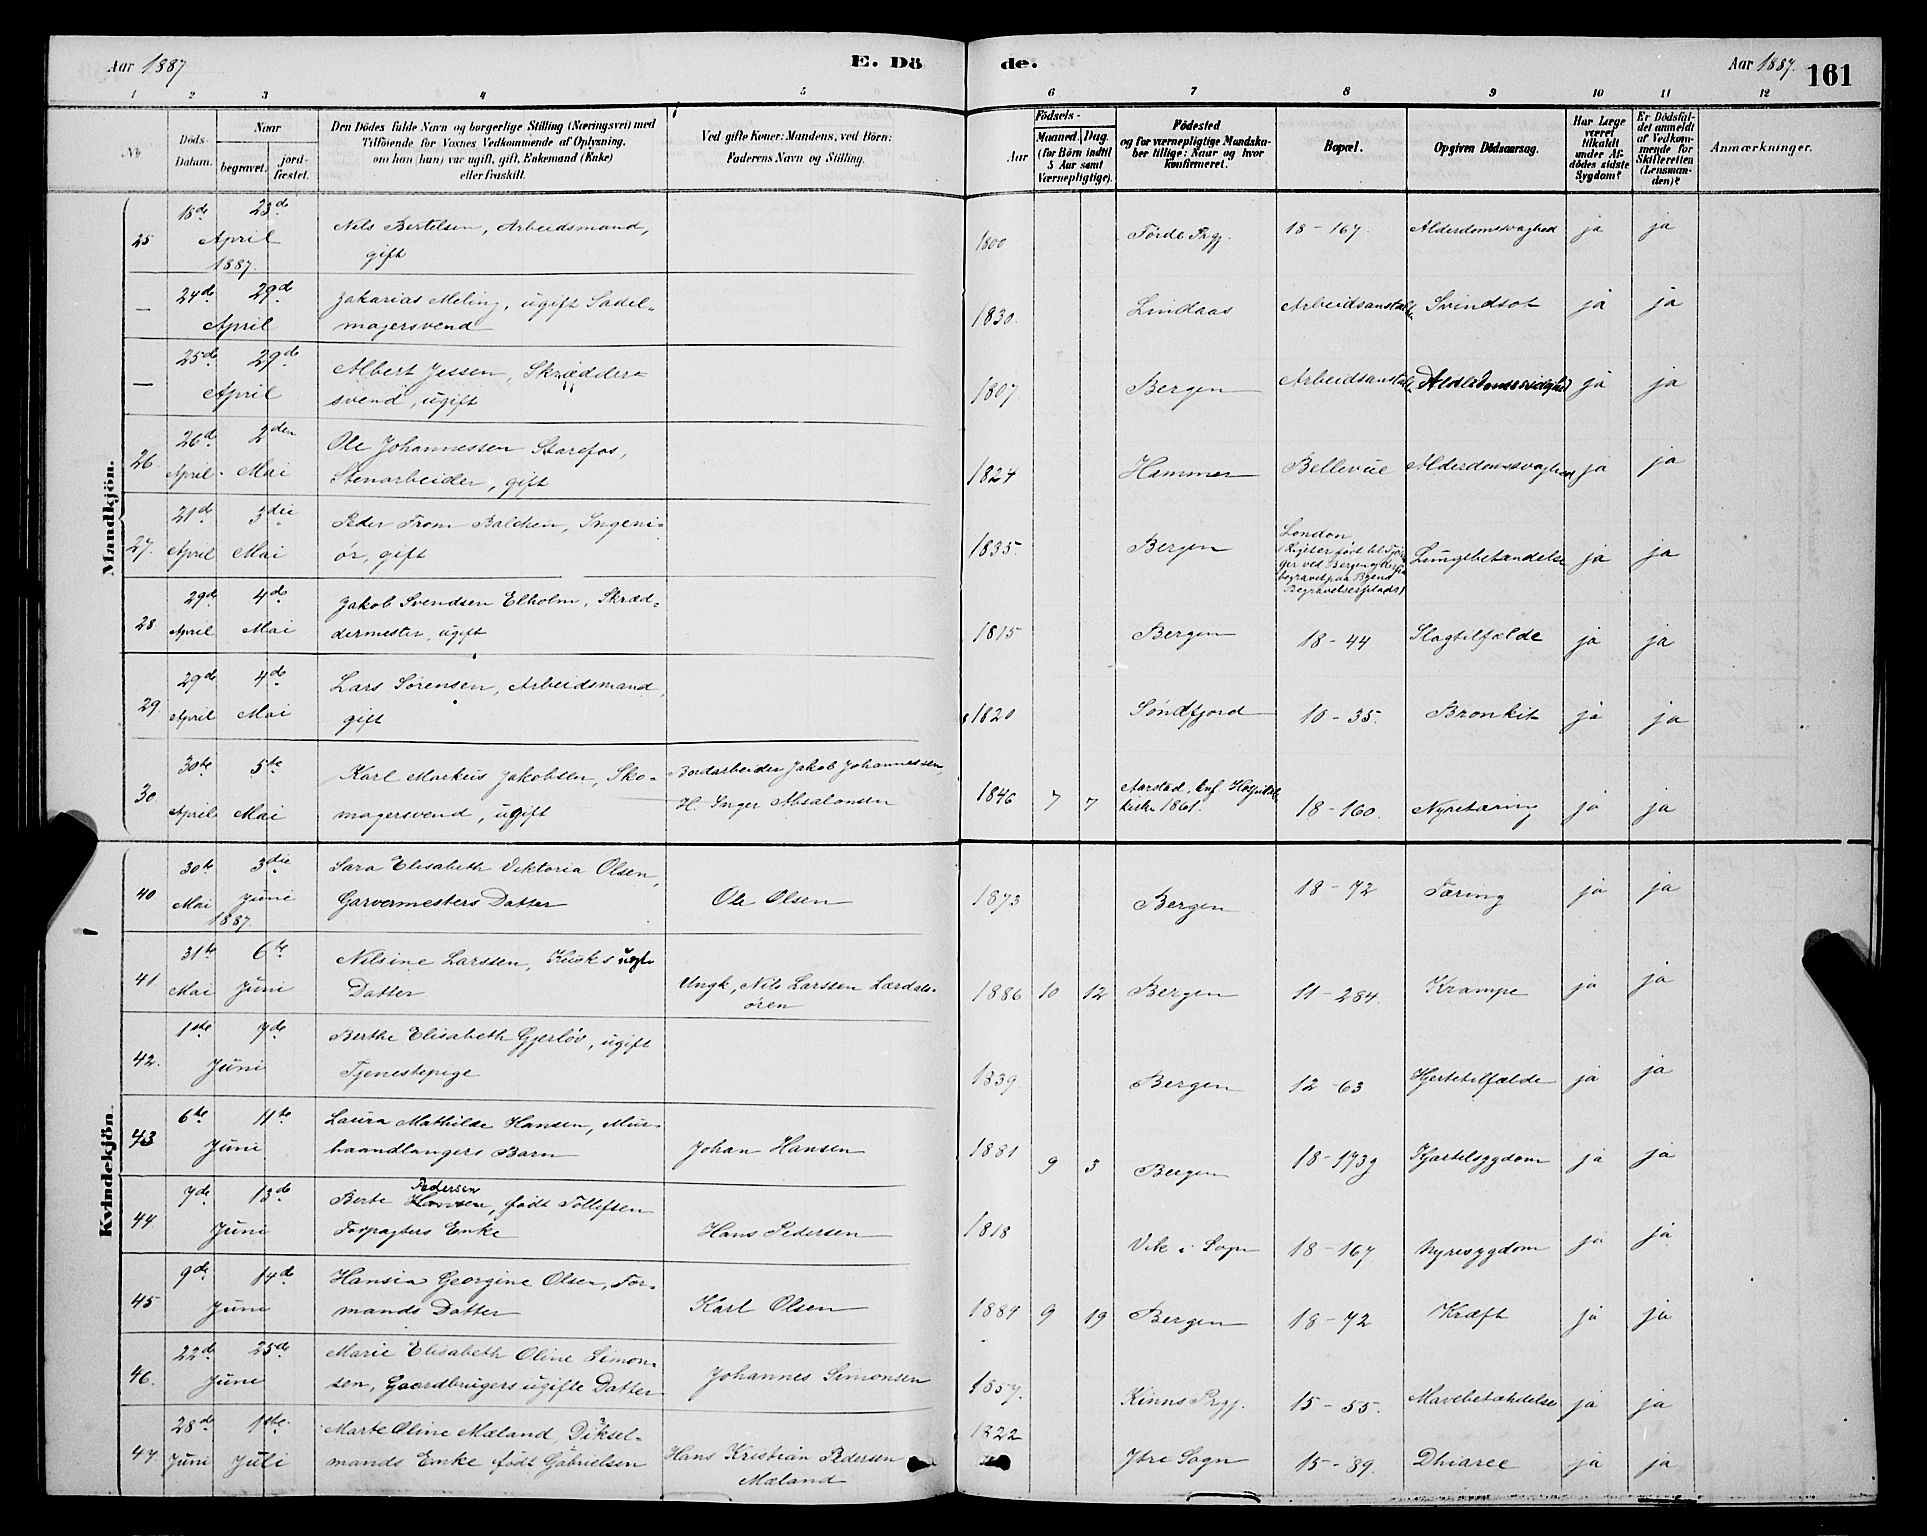 Aar 1887.
E. Dö
de.
Aar 1887.
161
1 2 3 4 5 6 7 8 9 10 11 12
No
Döds-Datum.
Naar begravet. jordfæstet.
Den Dödes fulde Navn og borgerlige Stilling (Næringsvei) med Tilföiende for Voxnes Vedkommende af Oplysning, om han (hun) var ugift, gift, Enkemand (Enke) eller fraskilt.
Ved gifte Koner: Mandens, ved Börn: Faderens Navn og Stilling.
Födsels-
Aar
Maaned. Dag.
(for Börn indtil 5 Aar samt Værnepligtige).
Födested og for værnepligtige Mandskaber tillige: Naar og hvor konfirmeret.
Bopæl.
Opgiven Dödsaarsag.
Har Læge været tilkaldt under Afdödes sidste Sygdom?
Er Dödsfaldet anmeldt af Vedkommende for Skifteretten (Lensmanden)?
Anmærkninger.
Mandkjön.
25 18de 23de April 1887. Nils Bertelsen, Arbeidsmand, gift 1800 Förde Prgj. 18-167. Alderdomssvaghed ja ja
— 24de 29de April Zakarias Meling, ugift Sadelmagersvend 1830. Lindaas Arbeidsanstalten Svindsot ja ja
— 25de 29de April Albert Jessen, Skræddersvend, ugift 1807 Bergen Arbeidsanstalten Alderdomssvaghed ja ja
26. 26de April. 2den Mai Ole Johannessen Starefos, Stenarbeider, gift 1824 Hammer Bellevue Alderdomssvaghed ja ja
27. 21de April 3die Mai Peder From Balchen, Ingeniör, gift 1835. Bergen London (Liget er ført til ved Bergen og derfra begravet paa Byens Begravelsesplads) Lungebetændelse ja ja
28 29de April 4de Mai Jakob Svendsen Elholm, Skræddermester, ugift 1815 Bergen 18-44 Slagtilfælde ja ja
29. 29de April 4de Mai Lars Sörensen, Arbeidsmand, gift 1820 Söndfjord 10-35. Bronkit ja ja
30. 30te April 5te Mai Karl Markus Jakobsen, Skomagersvend, ugift Bordarbeider Jakob Johannessen, H. Inger Absalonsen 1846 7 7 Aarstad, knf. Hospitalskirke 1861. 18-160. Nyretæring ja ja
Kvindekjön.
40 30te Mai 3die Juni 1887. Sara Elisabeth Viktoria Olsen, Garvermesters Datter Ole Olsen 1873 Bergen 18-72 Tæring ja ja
41. 31te Mai 6te Juni Nilsine Larssen, Kusks ugte Datter Ungk. Nils Larssen Lærdalsören 1886 10 12 Bergen 11-284. Krampe ja ja
42. 1ste 7de Juni Berthe Elisabeth Gjerlöv, ugift Tjenestepige 1839 Bergen 12-63 Hjertetilfælde ja ja
43 6te 11te Juni Laura Mathilde Hansen, Murhaandlangers Barn Johan Hansen 1881 9 3 Bergen 18-173g Kjertelsygdom ja ja
44 7de 13de Juni Berte Pedersen, födt Tollefsen Forpagters Enke Hans Pedersen 1818 Vik i Sogn 18-167 Nyresygdom ja ja
45 9de 14de Juni Hansia Georgine Olsen, Formands Datter Karl Olsen 1884 9 19 Bergen 18-72 Kræft ja ja
46. 22de 25de Juni Marie Elisabeth Oline Simonsen, Gaardbrugers ugifte Datter Johannes Simonsen 1857. Kinns Prgj. 15-55. Mavebetændelse ja ja
47. 28de Juni 1ste Juli Marte Oline Mæland, Dikselmands Enke födt Gabrielsen Hans Kristian Pedersen Mæland 1822 Ytre Sogn 15-89. Dhiaree ja ja